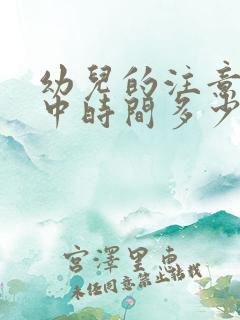 幼兒的注意
中時間多少
宮澤里惠
未任同意禁止轉載